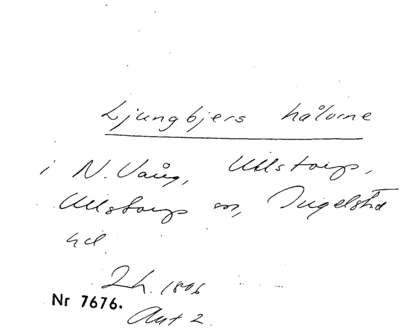 Ljungbjers hålorne
i N. Vång, Ullstorp,
Ullstorps sn, Ingelstad
hd
2h. 1896
Nr 7676.
Ant 2